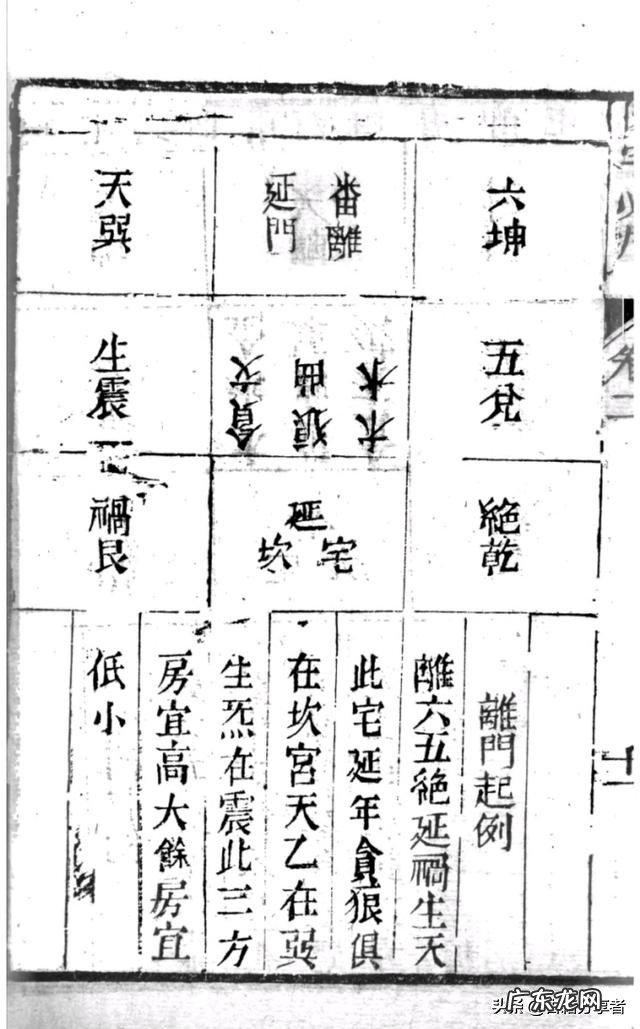 六坤
番離
延門
天巽
五兊
木水
狼曲
貪文
生震
絶乾
延
坎宅
禍艮
離門起例
離六五絶延禍生天
此宅延年貪狠俱
在坎宮天乙在巽
生炁在震此三方
房宜高大餘房宜
低小
卷二
十一
广东龙网